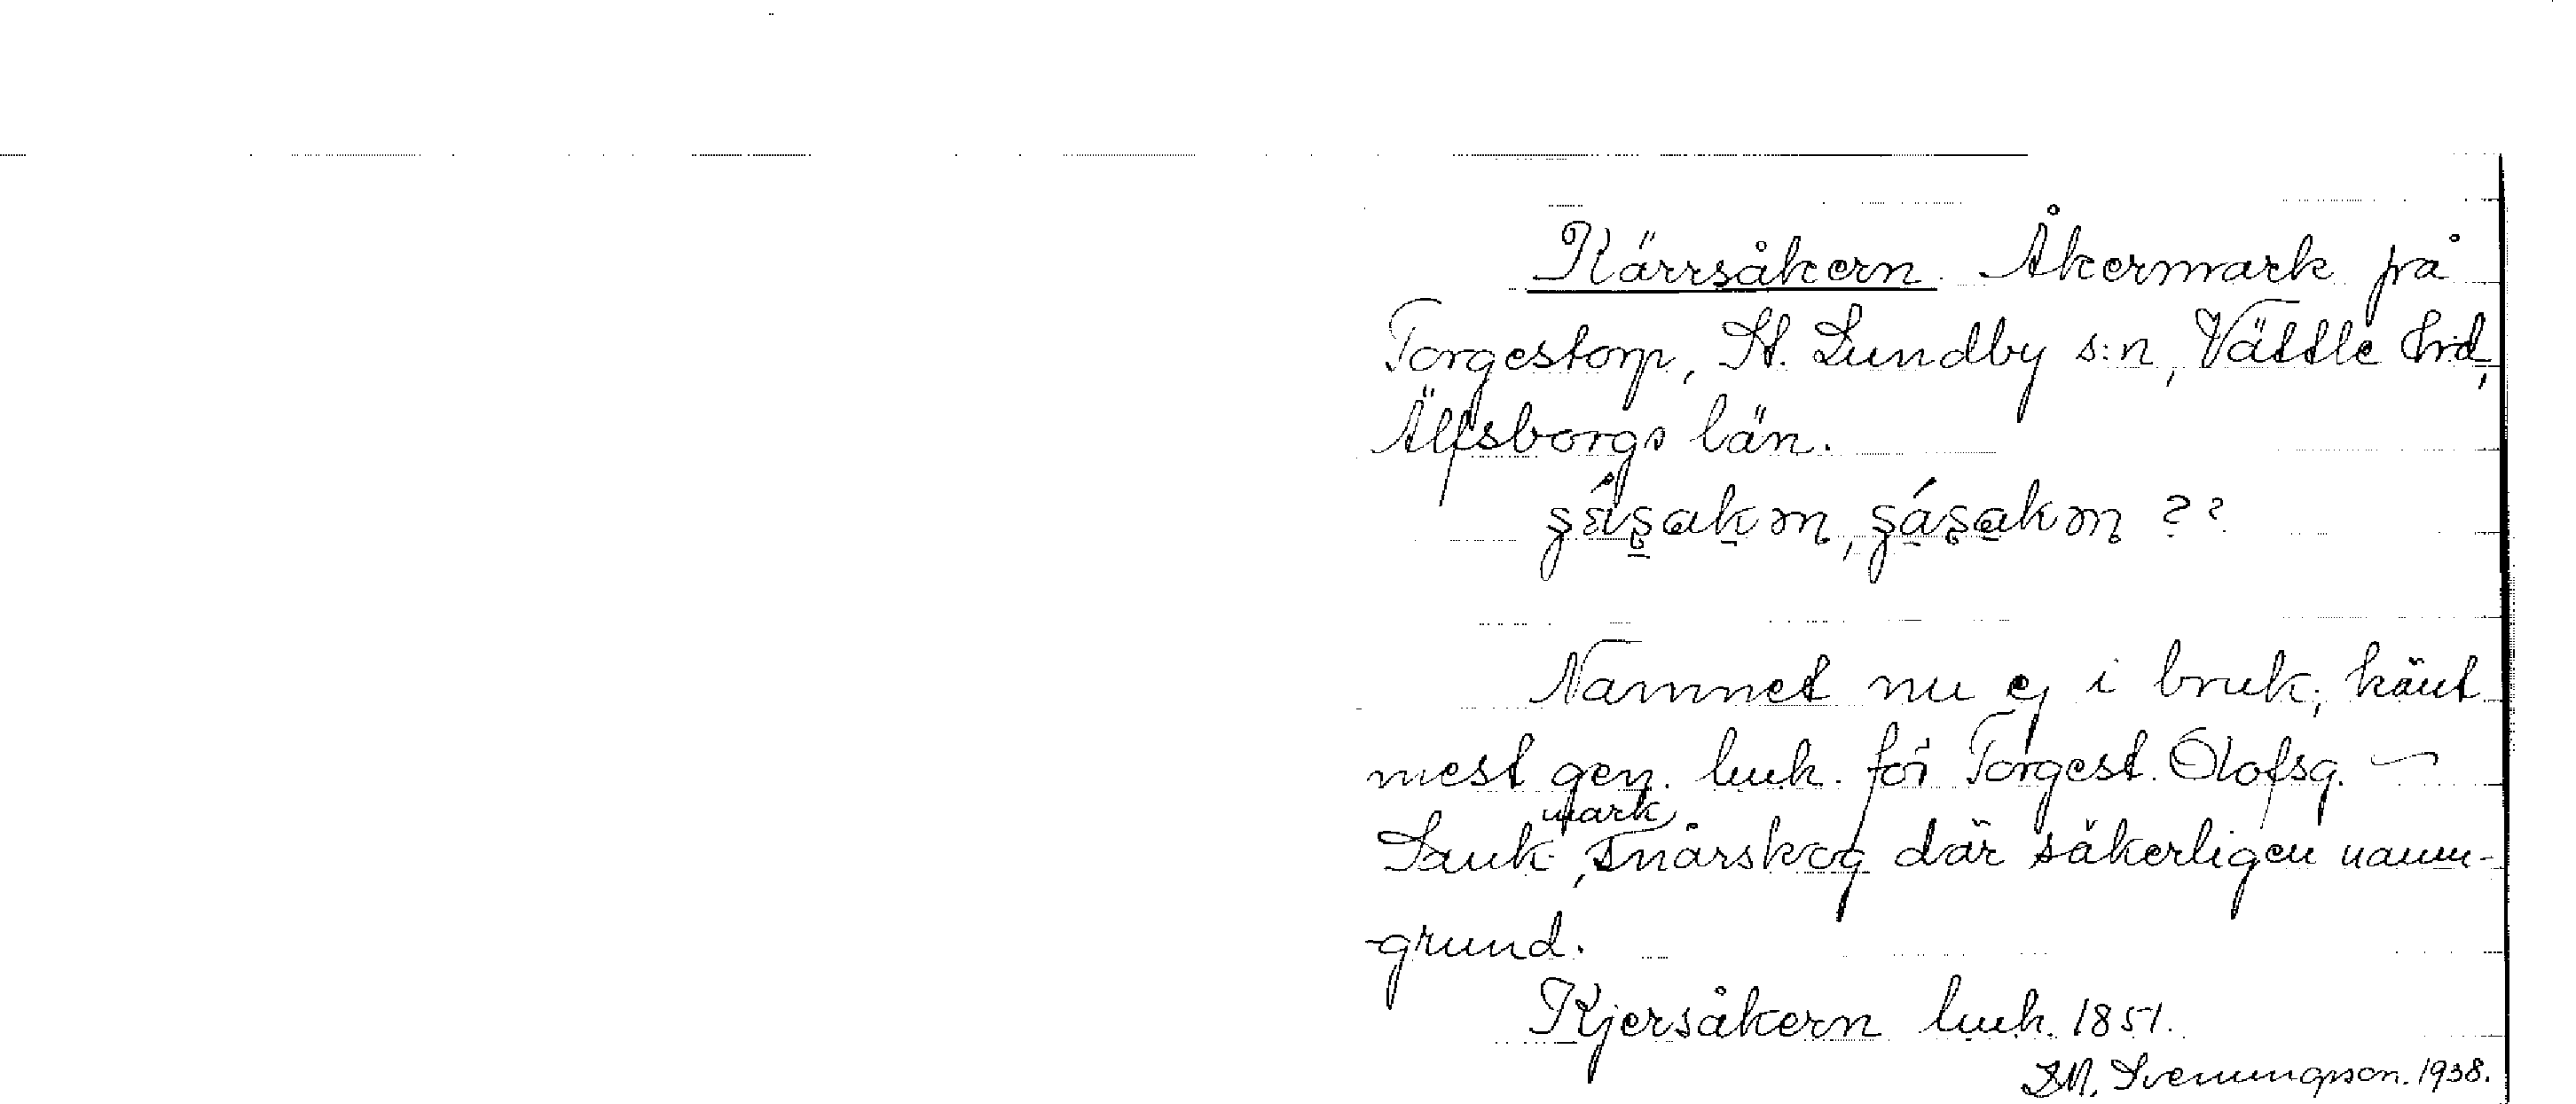 Kärrsåkern. Åkermark på
Torgestorp, St. Lundby s:n, Vättle hrd,
Älfsborgs län.
Namnet nu ej i bruk, känt
mest gen. luuk. för Torgest. Olofsg. –
Sank mark, snårskog där säkerligen namn-
grund.
Kjersåkern luuk. 1851.
Svenungsson. 1938.